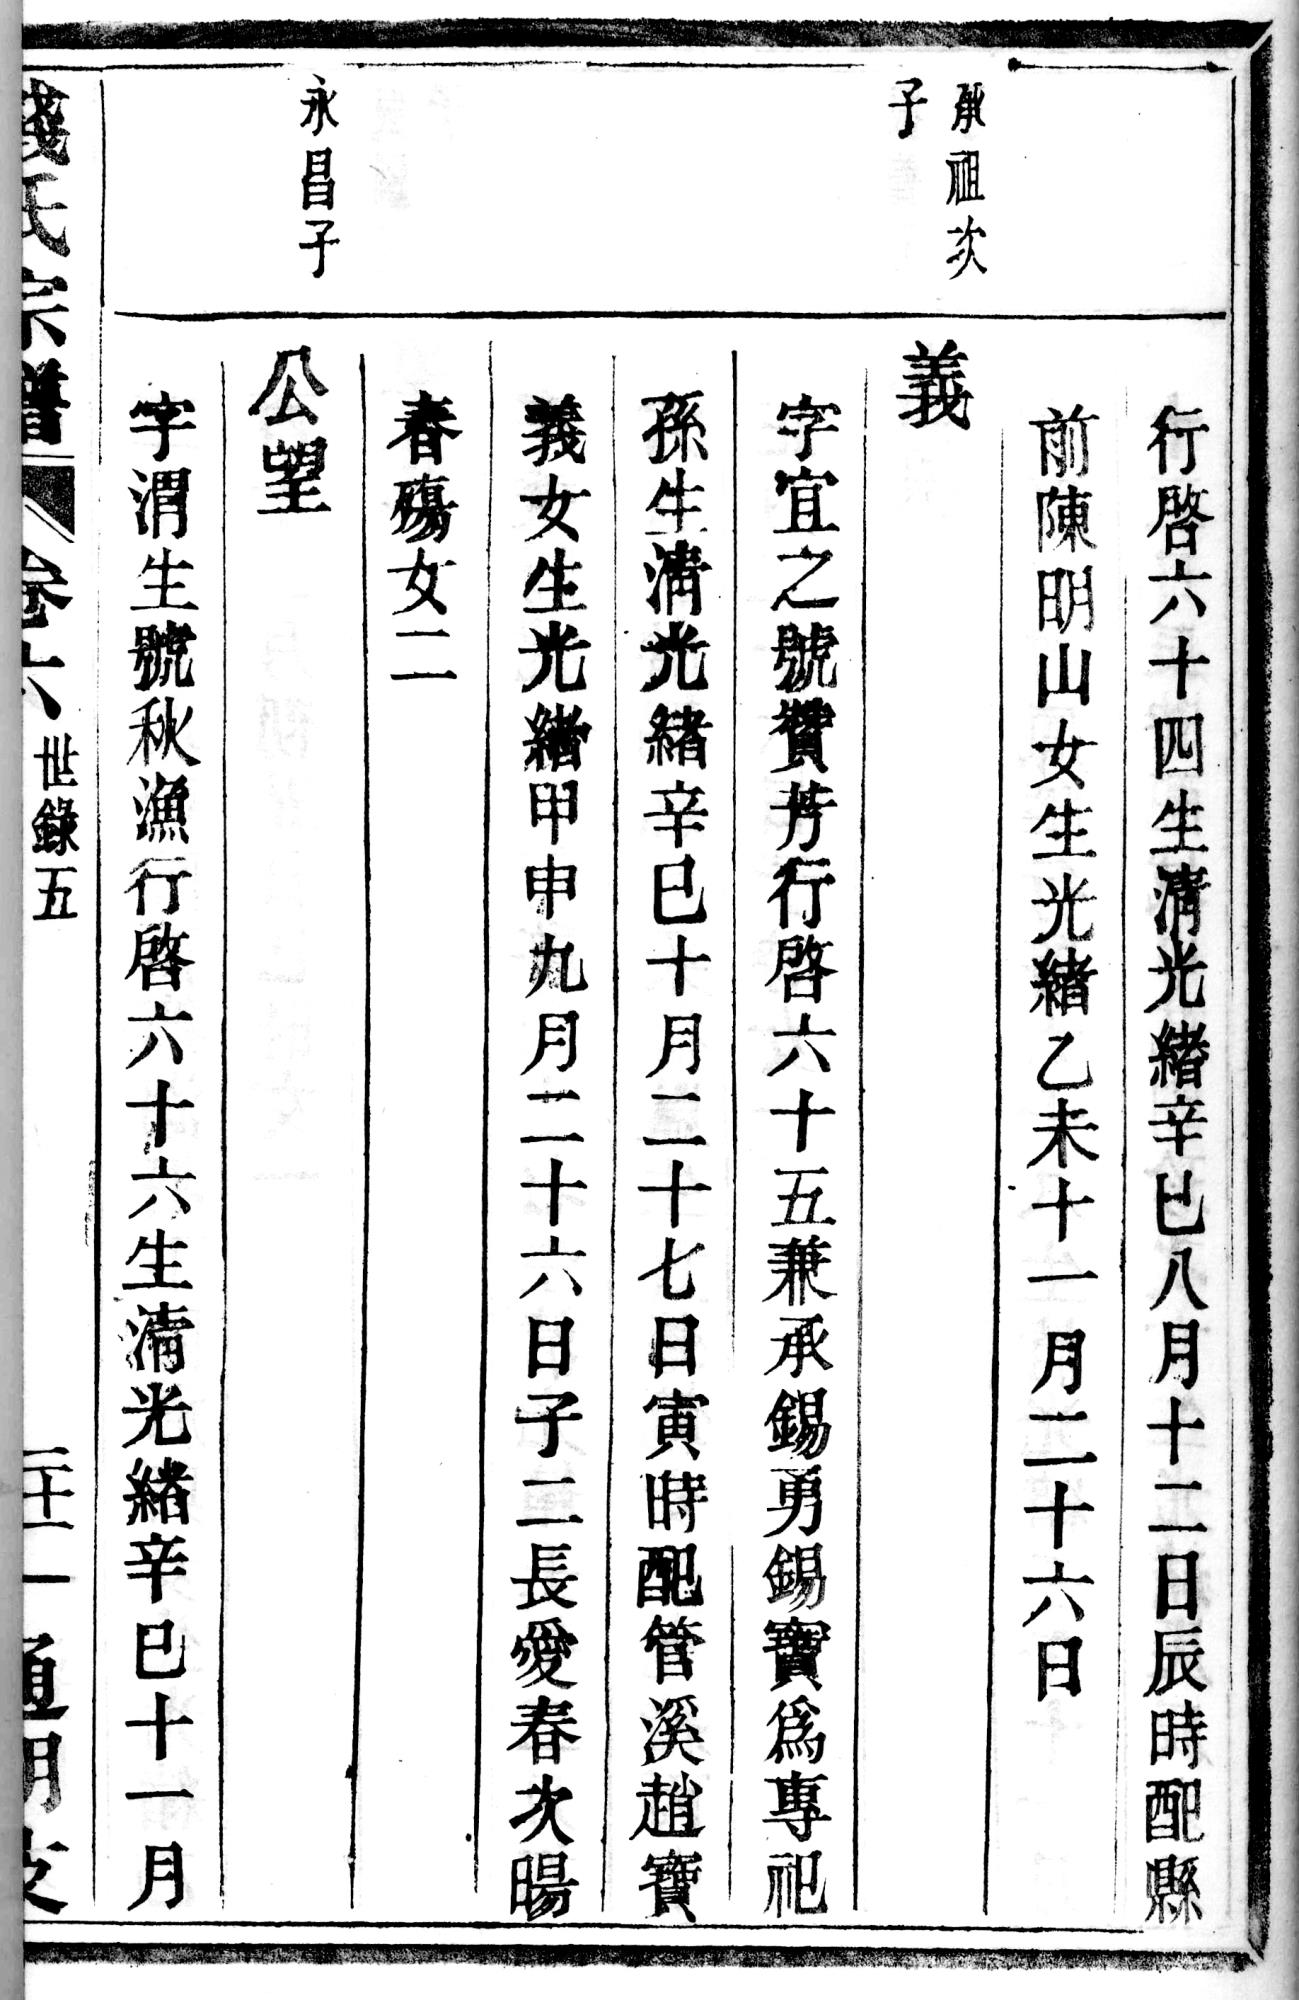 行啓六十四生淸光緖辛巳八月十二日辰時配縣
前陳明山女生光緖乙未十一月二十六日
承祖次
子
義
字宜之號贊芳行啓六十五兼承錫勇錫寶爲專祀
孫生淸光緖辛巳十月二十七日寅時配管溪趙寶
義女生光緖甲申九月二十六日子二長愛春次暘
春殤女二
永昌子
公望
字渭生號秋漁行啓六十六生淸光緖辛巳十一月
錢氏宗譜 卷六 世錄五 通明支